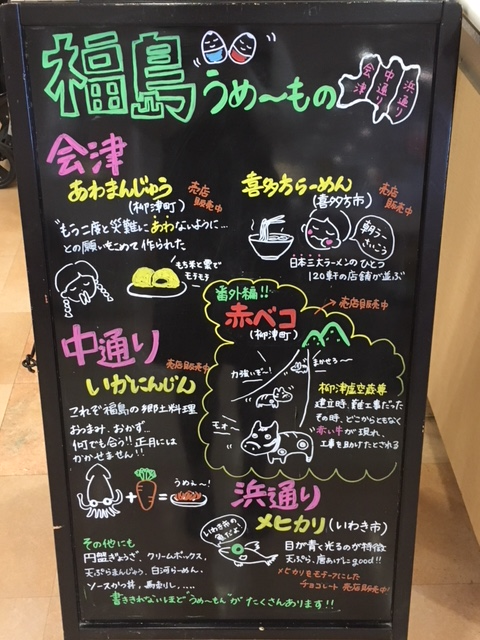 福島うめ～もの
会津
中通り
浜通り
会津
あわまんじゅう
(柳津町)
売店
販売中
"もう二度と災難にあわないように…
との願いをこめて作られた
もち米と粟で
モチモチ
喜多方らーめん
(喜多方市)
売店
販売中
朝ラー、
日本三大ラーメンのひとつ
120軒の店舗が並ぶ
番外編!!
赤ベコ
(柳津町)
売店販売中
力強いぞ～!
まかせろ～
モォー
柳津虚空蔵尊
建立時、難工事だった
その時、どこからともなく
赤い牛が現れ、
工事を助けたとされる
中通り
売店販売中
いかにんじん
これぞ福島の郷土料理
おつまみ、おかず…
何でも合う!!正月には
かかせません!!
+
=
うめぇ～!
浜通り
メヒカリ(いわき市)
いわき市の
魚だよ!
目が青く光るのが特徴
天ぷら、唐あげにgood!!
メヒカリをモチーフにした
チョコレート 売店販売中
その他にも
円盤ぎょうざ、クリームボックス、
天ぷらまんじゅう、白河らーめん、
ソースかつ丼、馬刺し、……
書ききれないほど"うめ～もん"がたくさんあります!!